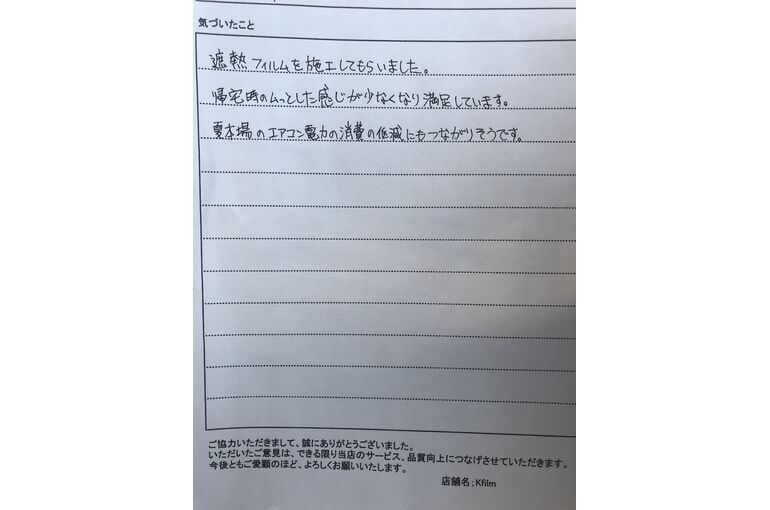 気づいたこと
遮熱フィルムを施工してもらいました。
帰宅時のムっとした感じが少なくなり満足しています。
夏本場のエアコン電力の消費の低減にもつながりそうです。
ご協力いただきまして、誠にありがとうございました。
いただいたご意見は、できる限り当店のサービス、品質向上につなげさせていただきます。
今後ともご愛顧のほど、よろしくお願いいたします。
店舗名；Kfilm